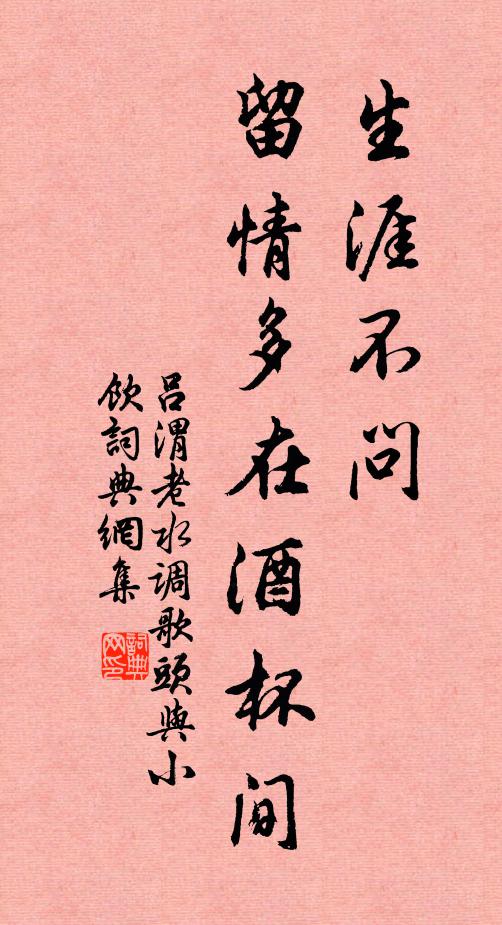 生涯不问
留情多在酒杯间
吕渭老水调歌头與小
饮詞典網集
詞典网印